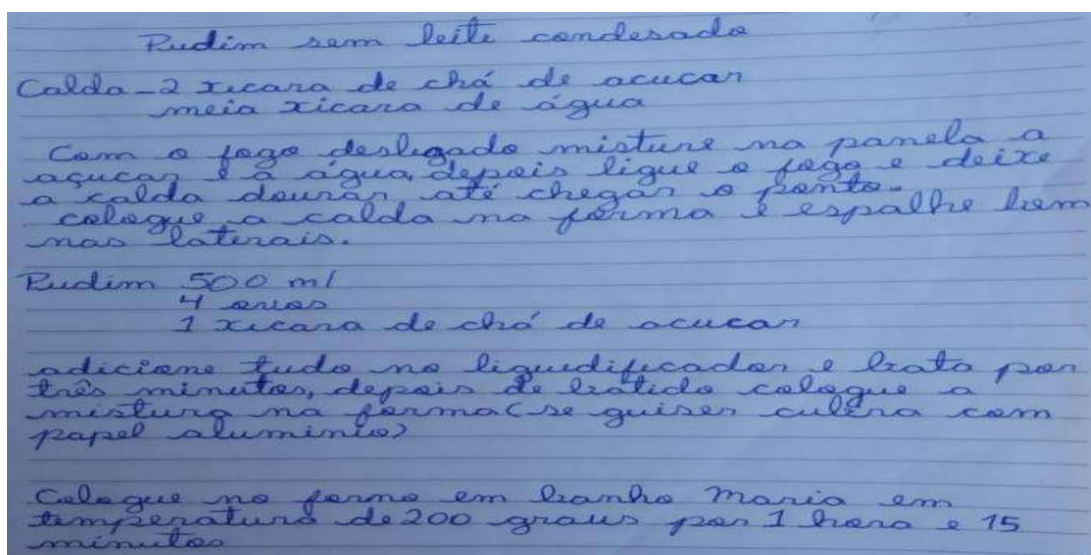 Pudim sem leite condesado
Calda - 2 xicara de chá de acucar
meia xicara de água
Com o fogo desligado misture na panela a
açucar e a água, depois ligue o fogo e deixe
a calda dourar até chegar o ponto.
coloque a calda na forma e espalhe bem
nas laterais.
Pudim 500 ml
4 ovos
1 xicara de chá de acucar
adicione tudo no liquidificador e bata por
três minutos, depois de batido coloque a
mistura na forma (se quiser cubra com
papel aluminio)
Coloque no forno em banho Maria em
temperatura de 200 graus por 1 hora e 15
minutos